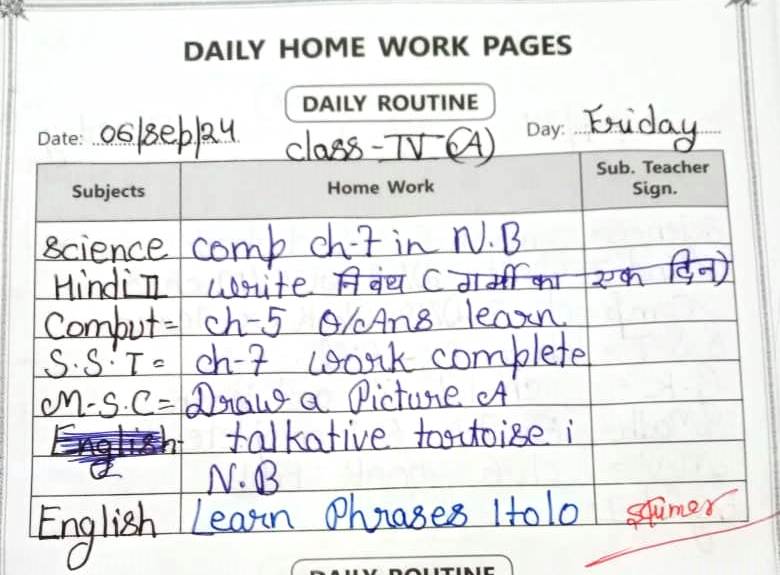 DAILY HOME WORK PAGES
DAILY ROUTINE
Date: 06/Sep/24 Day: Friday
class - IV (A)
Subjects Home Work Sub. Teacher Sign.
Science comp ch-7 in N.B
Hindi II write निबंध (गर्मी का एक दिन)
Comput= ch-5 Q/Ans learn
S.S.T= ch-7 work complete
M.S.C= Draw a Picture A
English talkative tortoise i
N.B
English Learn Phrases 1 to 10
DAILY ROUTINE